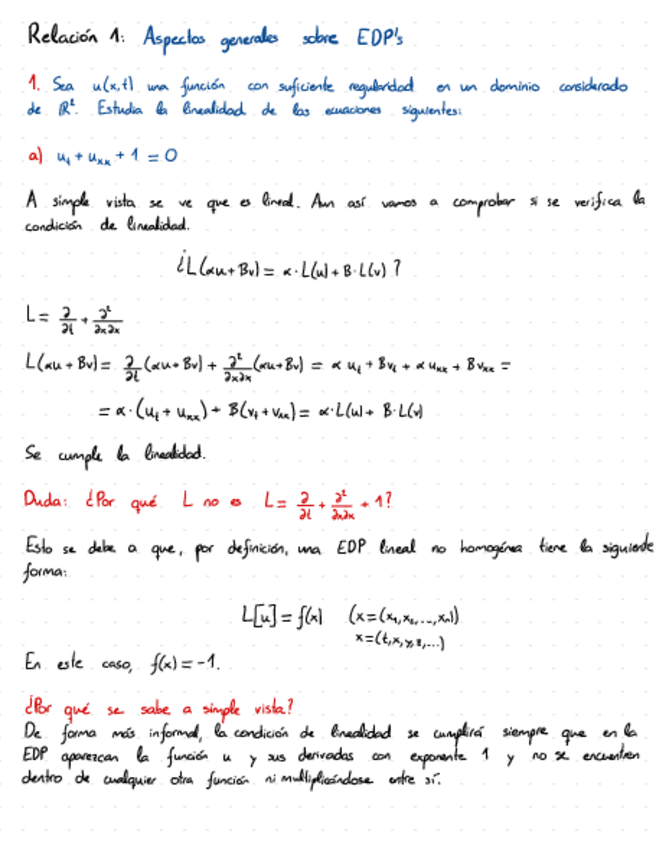 Relación 1: Aspectos generales sobre EDP's
1. Sea u(x,t) una función con suficiente regularidad en un dominio considerado
de ℝ². Estudia la linealidad de las ecuaciones siguientes:
a) uₜ + uₓₓ + 1 = 0
A simple vista se ve que es lineal. Aun así vamos a comprobar si se verifica la
condición de linealidad.
¿L(αu + Bv) = α·L(u) + B·L(v)?
L = ∂/∂t + ∂²/∂x∂x
L(αu + Bv) = ∂/∂t (αu + Bv) + ∂²/∂x∂x (αu + Bv) = α uₜ + B vₜ + α uₓₓ + B vₓₓ =
= α·(uₜ + uₓₓ) + B(vₜ + vₓₓ) = α·L(u) + B·L(v)
Se cumple la linealidad.
Duda: ¿Por qué L no es L = ∂/∂t + ∂²/∂x∂x + 1?
Esto se debe a que, por definición, una EDP lineal no homogénea tiene la siguiente
forma:
L[u] = f(x) (x = (x₁, x₂, ..., xₙ))
x = (t, x, y, z, ...)
En este caso, f(x) = -1.
¿Por qué se sabe a simple vista?
De forma más informal, la condición de linealidad se cumplirá siempre que en la
EDP aparezcan la función u y sus derivadas con exponente 1 y no se encuentren
dentro de cualquier otra función ni multiplicándose entre sí.